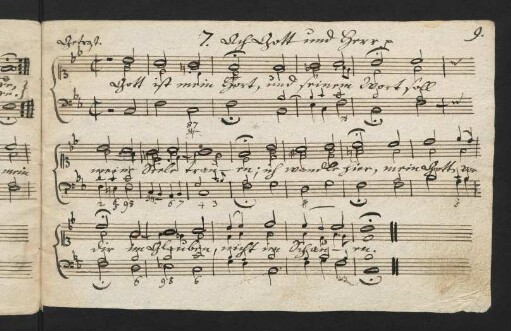 Gesezt. 7. Ach Gott und Herr p 9.
Gott ist mein Hort, und seinem Wort, soll
meine Seele trau- en; ich wandle hier, mein Gott, vor
dir im Glauben, nicht im Schau- en.